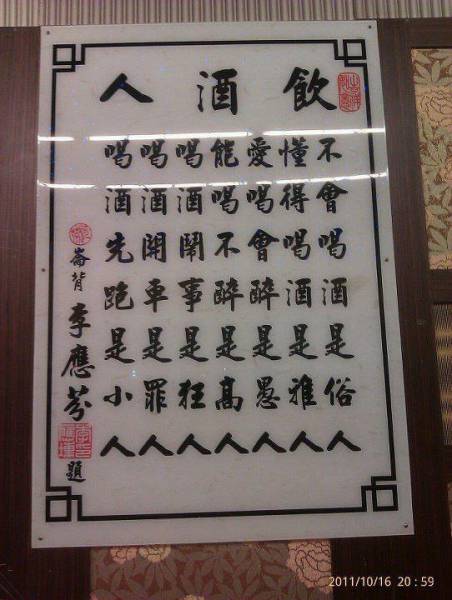 飲酒人
不會喝酒是俗人
懂得喝酒是雅人
愛喝會醉是愚人
能喝不醉是高人
喝酒鬧事是狂人
喝酒開車是罪人
喝酒先跑是小人
崙背 李應芬 題
2011/10/16 20:59